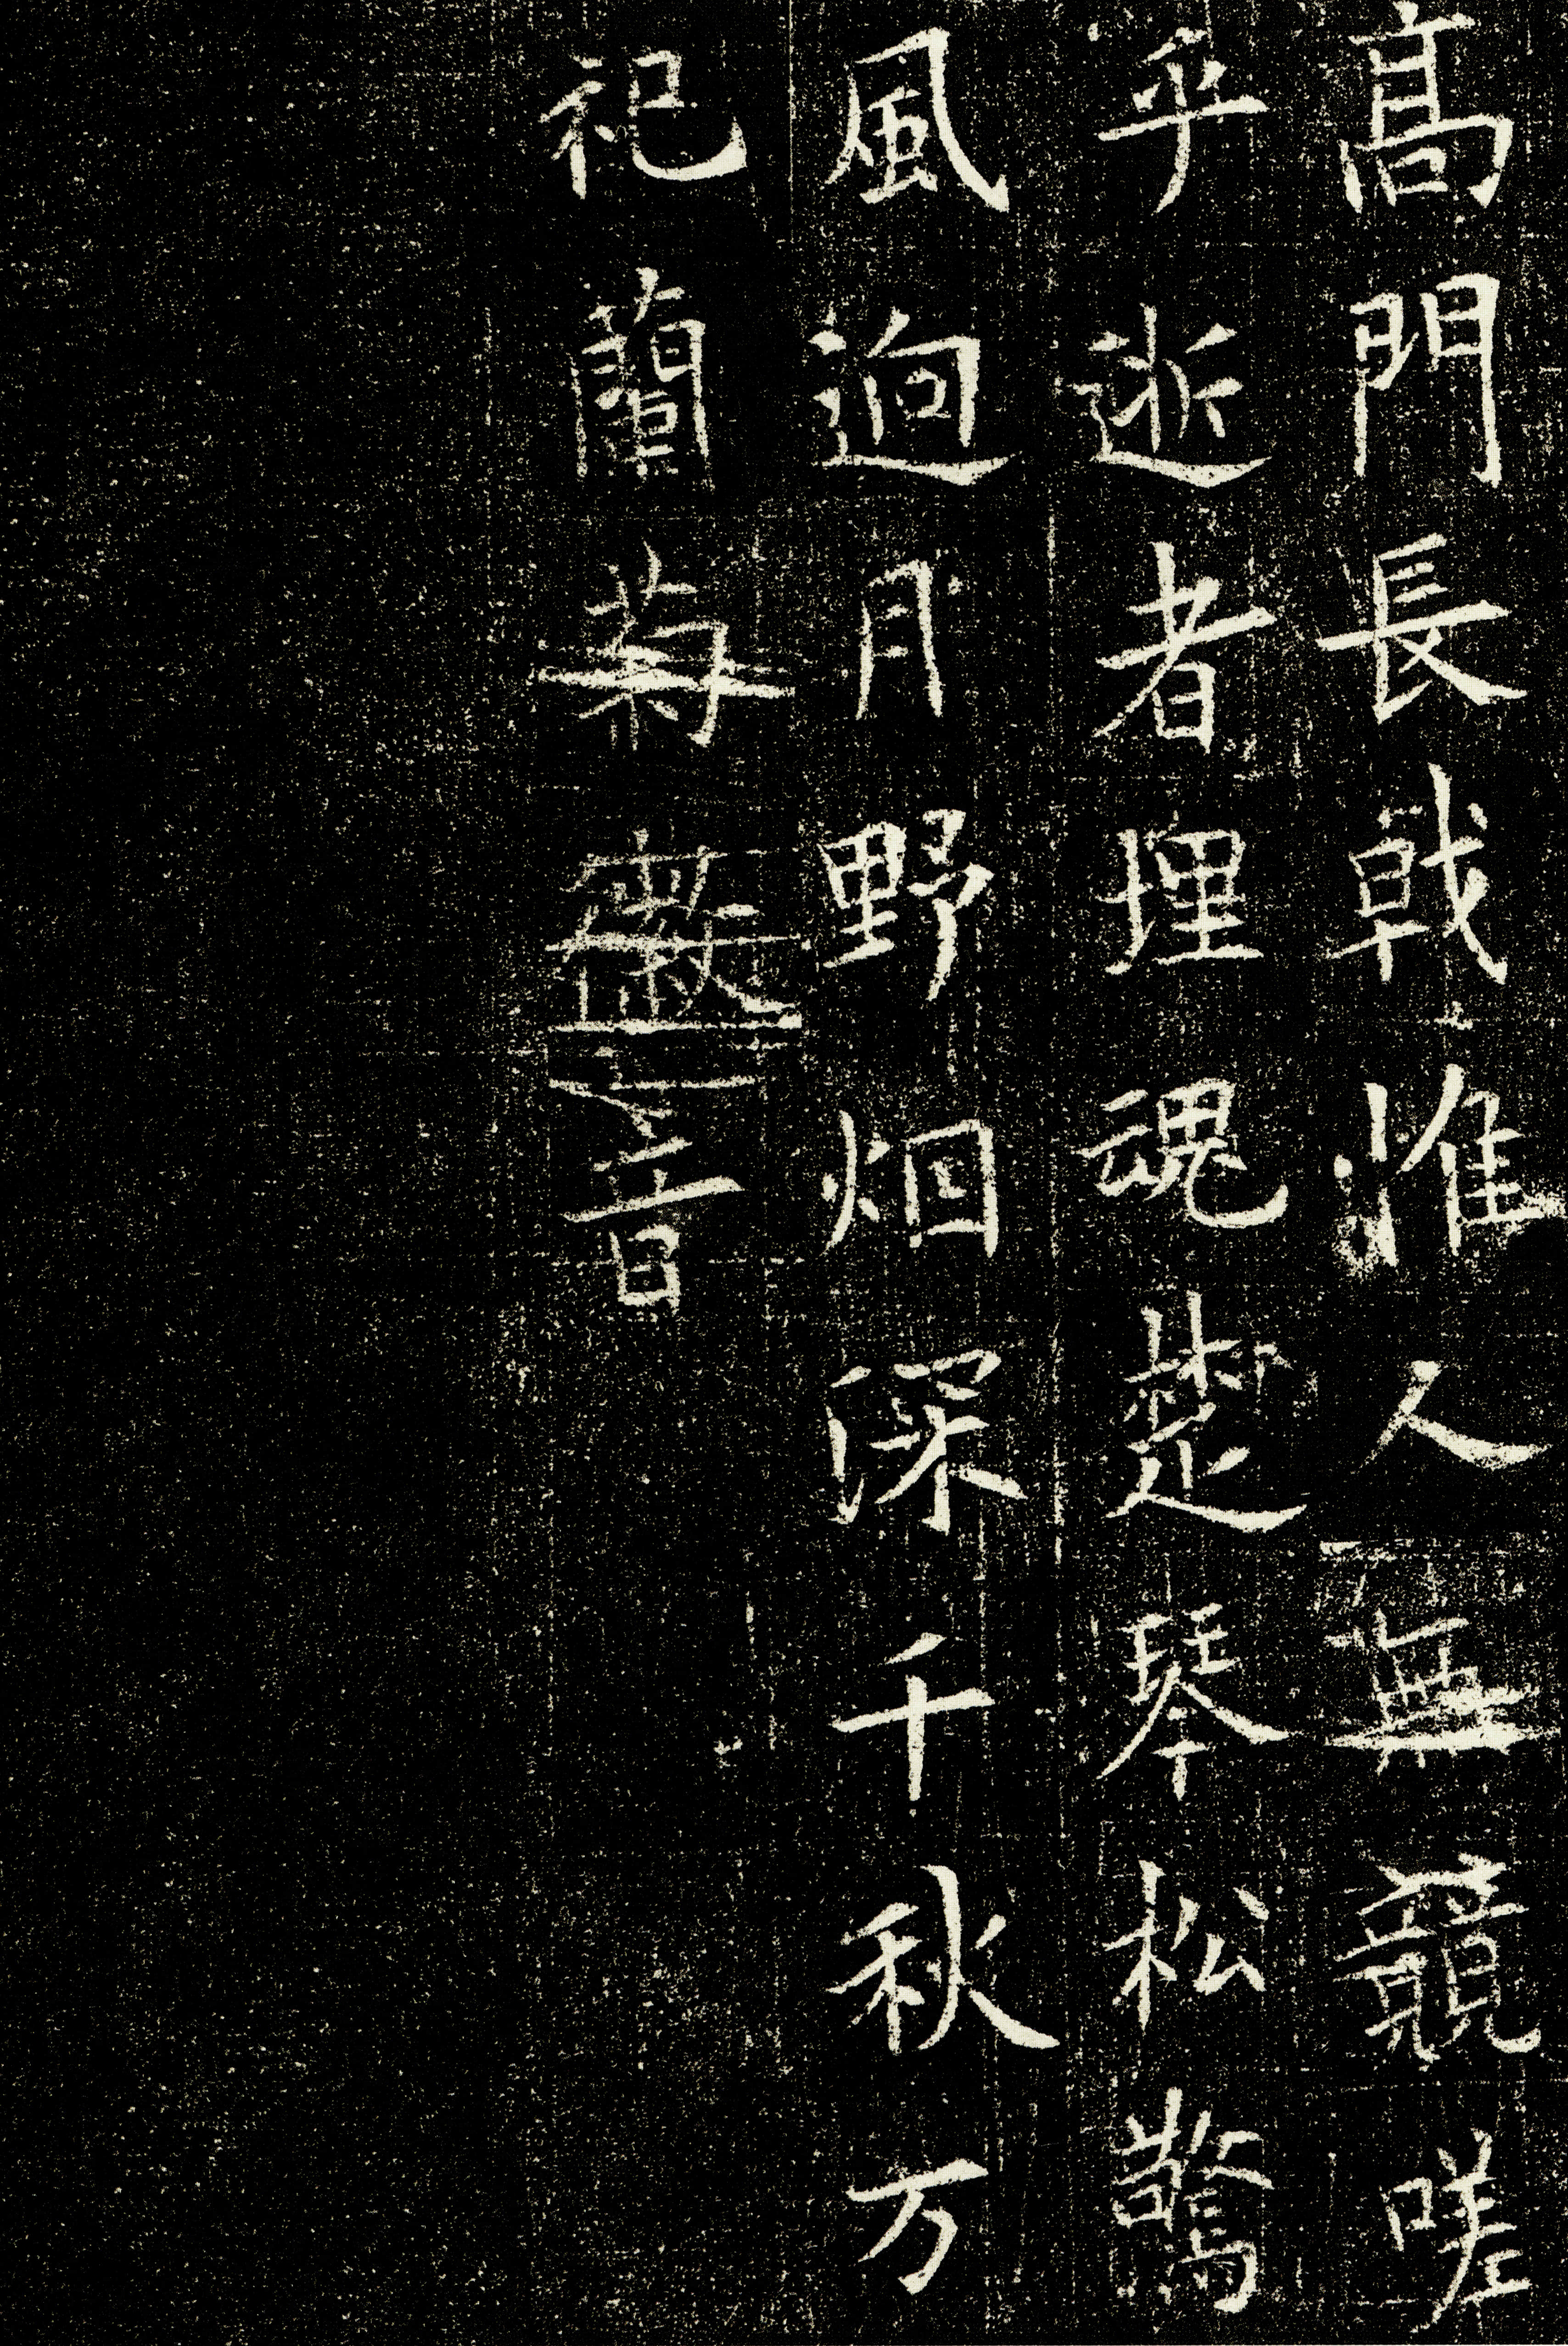 高門長戟惟人無競嗟
乎逝者埋魂楚琴松驚
風迥月野烟深千秋万
祀蘭菊徽音